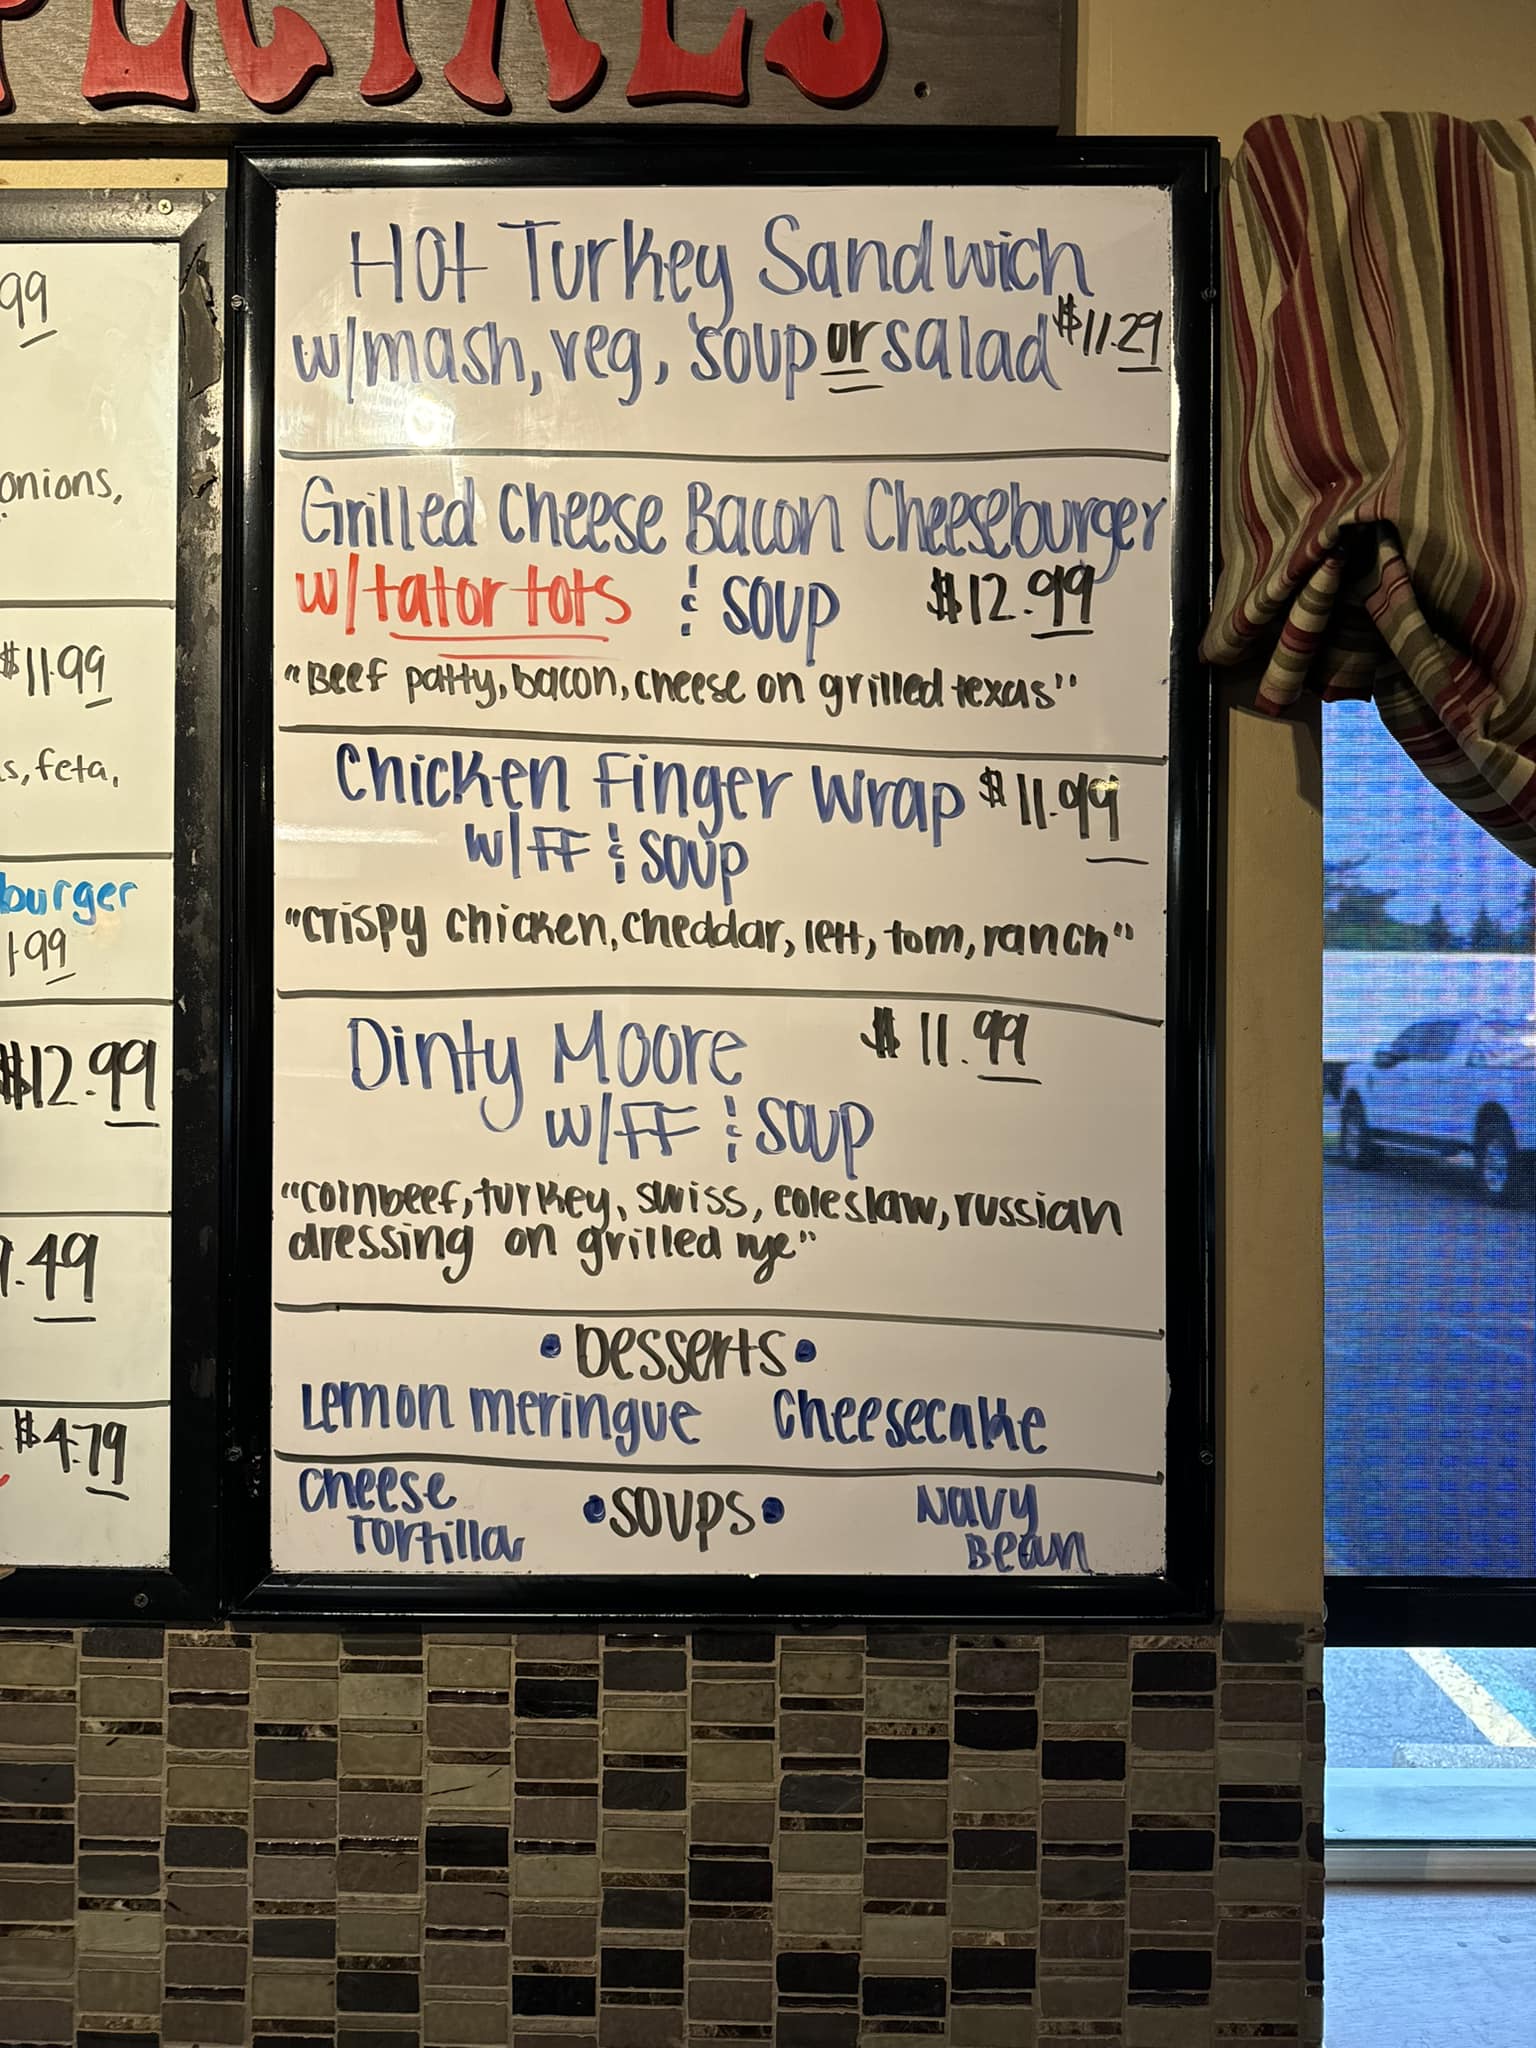 SPECIALS
99
onions,
$11.99
s, feta,
burger
1.99
$12.99
.49
$4.79
Hot Turkey Sandwich
w/mash, veg, soup or salad $11.29
Grilled Cheese Bacon Cheeseburger
w/tator tots & soup $12.99
"Beef patty, bacon, cheese on grilled texas"
Chicken Finger Wrap $11.99
w/FF & soup
"crispy chicken, cheddar, lett, tom, ranch"
Dinty Moore $11.99
w/FF & soup
"cornbeef, turkey, swiss, coleslaw, russian
dressing on grilled rye"
• Desserts •
Lemon meringue Cheesecake
Cheese Tortilla • Soups • Navy Bean